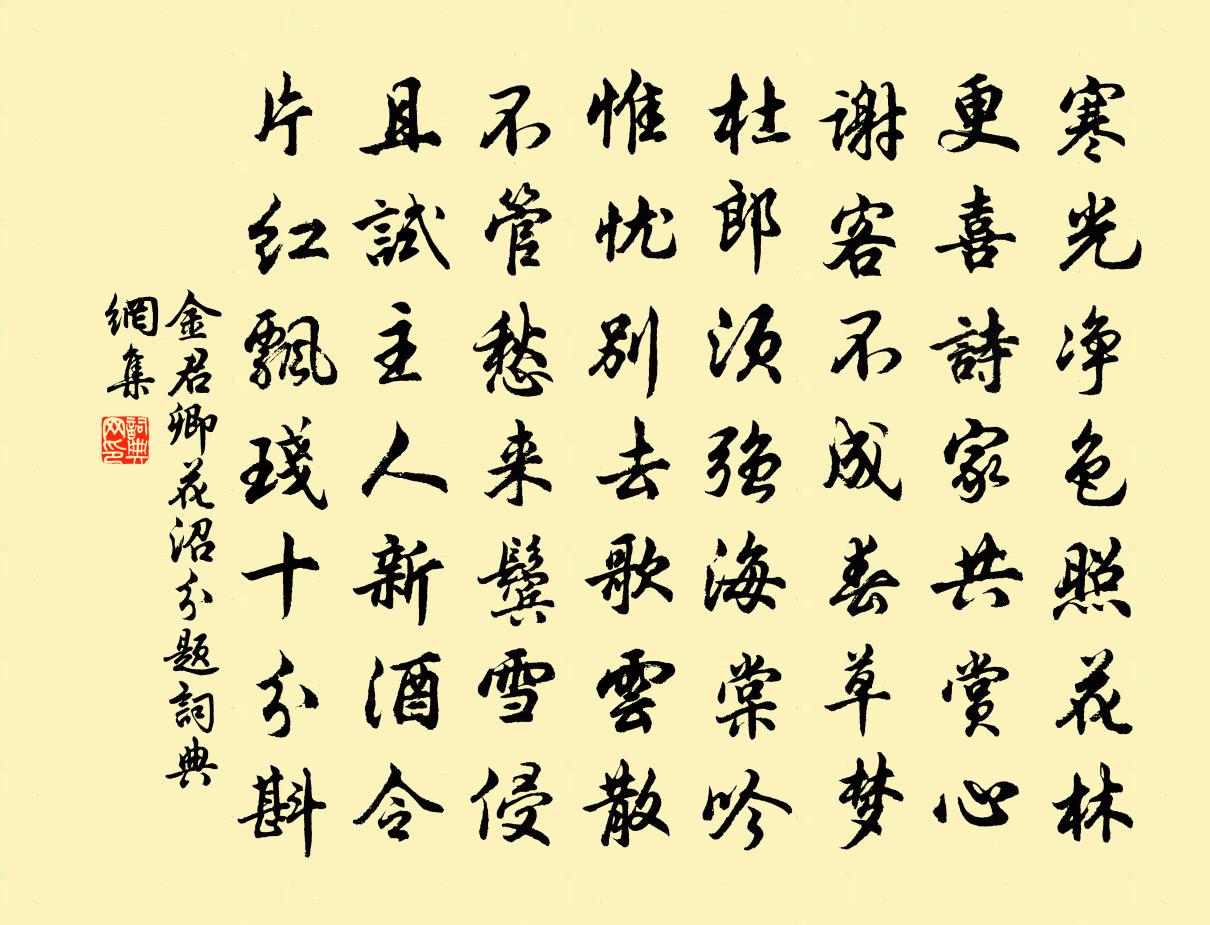 寒光净色照花林
更喜詩家共赏心
谢客不成春草梦
杜郎须强海棠吟
惟忧别去歌雲散
不管愁来鬓雪侵
且試主人新酒令
片红飘琖十分斟
金君卿花沼分题詞典
網集
詞典
网印